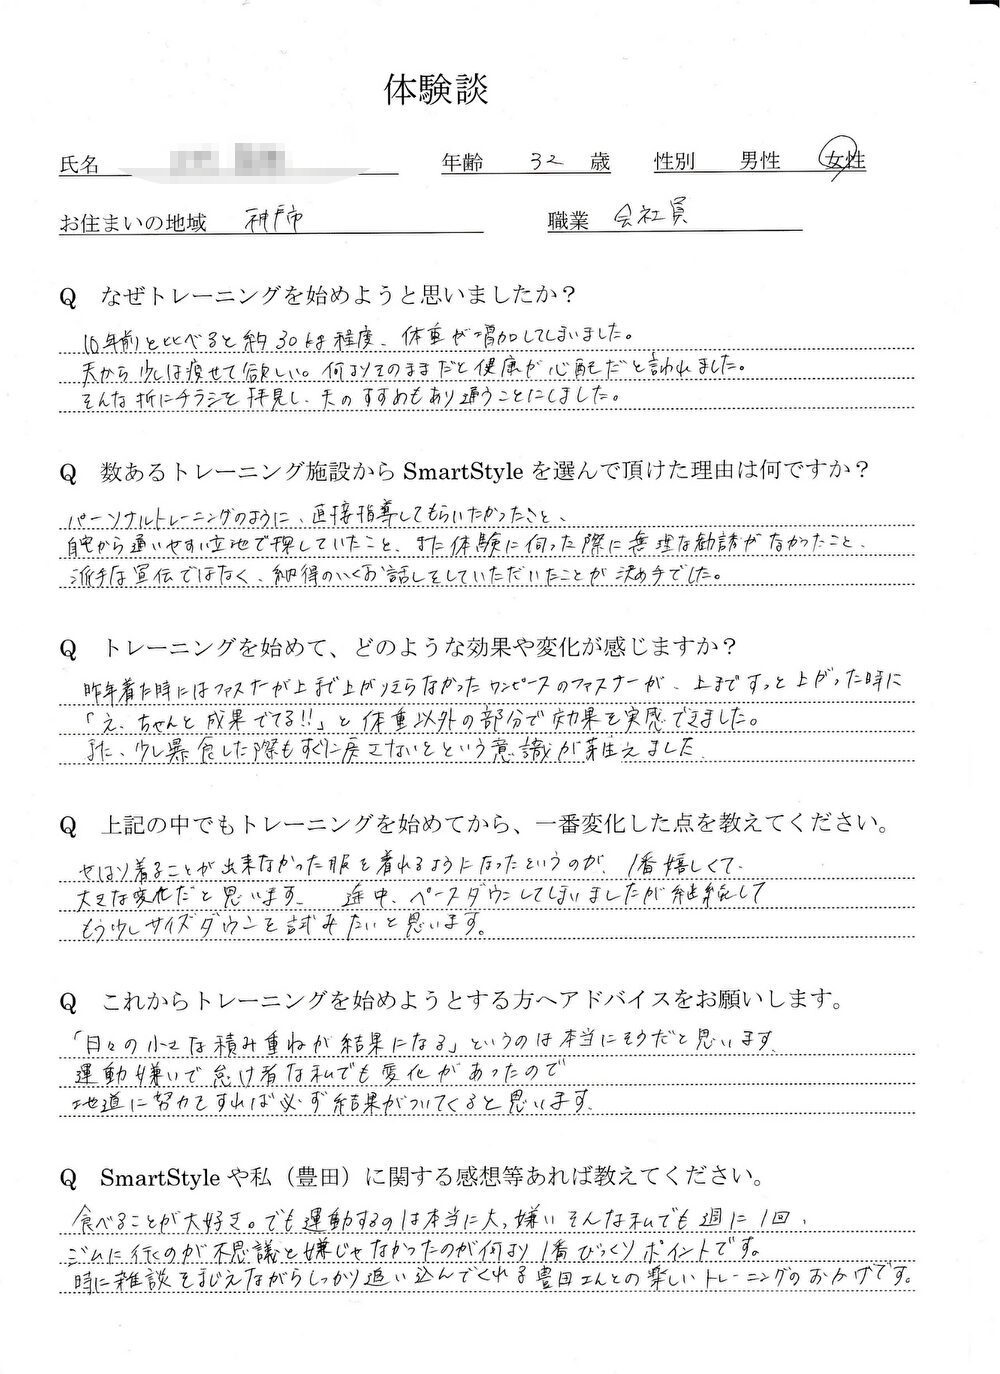 体験談
氏名 年齢 32 歳 性別 男性 女性
お住まいの地域 神戸市 職業 会社員
Q なぜトレーニングを始めようと思いましたか？
10年前と比べると約30kg程度、体重が増加してしまいました。
夫から少しは痩せて欲しい。何よりそのままだと健康が心配だと言われました。
そんな折にチラシを拝見し、夫のすすめもあり通うことにしました。
Q 数あるトレーニング施設から SmartStyle を選んで頂けた理由は何ですか？
パーソナルトレーニングのように、直接指導してもらいたかったこと、
自宅から通いやすい立地で探していたこと、また体験に伺った際に無理な勧誘がなかったこと、
派手な宣伝ではなく、納得のいくお話しをしていただいたことが決め手でした。
Q トレーニングを始めて、どのような効果や変化が感じますか？
昨年着た時にはファスナーが上まで上がりきらなかったワンピースのファスナーが、上まですっと上がった時に
「え、ちゃんと成果でてる!!」と体重以外の部分で効果を実感できました。
また、少し暴食した際もすぐに戻さないとという意識が芽生えました
Q 上記の中でもトレーニングを始めてから、一番変化した点を教えてください。
やはり着ることが出来なかった服を着れるようになったというのが、1番嬉しくて、
大きな変化だと思います。 途中、ペースダウンしてしまいましたが継続して
もう少しサイズダウンを試みたいと思います。
Q これからトレーニングを始めようとする方へアドバイスをお願いします。
「日々の小さな積み重ねが結果になる」というのは本当にそうだと思います
運動嫌いで怠け者な私でも変化があったので
地道に努力をすれば必ず結果がついてくると思います。
Q SmartStyle や私（豊田）に関する感想等あれば教えてください。
食べることが大好き。でも運動するのは本当に大っ嫌い そんな私でも週に1回、
ジムに行くのが不思議と嫌じゃなかったのが何より1番びっくりポイントです。
時に雑談をまじえながらしっかり追い込んでくれる豊田さんとの楽しいトレーニングのおかげです。